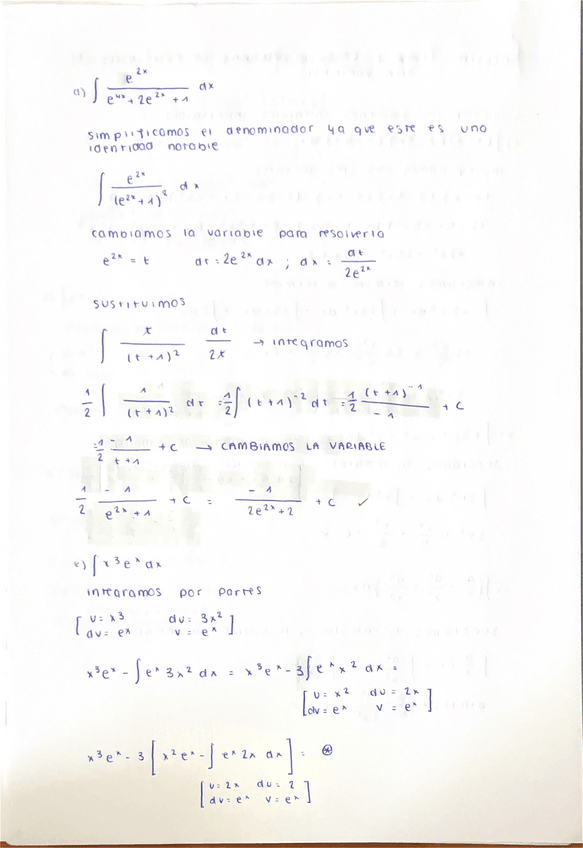 d) ∫ e^2x / (e^4x + 2e^2x + 1) dx
simplificamos el denominador ya que este es una
identidad notable
∫ e^2x / (e^2x + 1)^2 dx
cambiamos la variable para resolverla
e^2x = t dt = 2e^2x dx ; dx = dt / 2e^2x
sustituimos
∫ t / (t + 1)^2 dt / 2t → integramos
1/2 ∫ 1 / (t + 1)^2 dt = 1/2 ∫ (t + 1)^-2 dt = 1/2 (t + 1)^-1 / -1 + C
= 1/2 -1 / t + 1 + C → CAMBIAMOS LA VARIABLE
1/2 -1 / e^2x + 1 + C = -1 / 2e^2x + 2 + C ✓
e) ∫ x^3 e^x dx
integramos por partes
[ u = x^3 du = 3x^2
dv = e^x v = e^x ]
x^3 e^x - ∫ e^x 3x^2 dx = x^3 e^x - 3 ∫ e^x x^2 dx =
[ u = x^2 du = 2x
dv = e^x v = e^x ]
x^3 e^x - 3 [ x^2 e^x - ∫ e^x 2x dx ] = ⊛
[ u = 2x du = 2
dv = e^x v = e^x ]